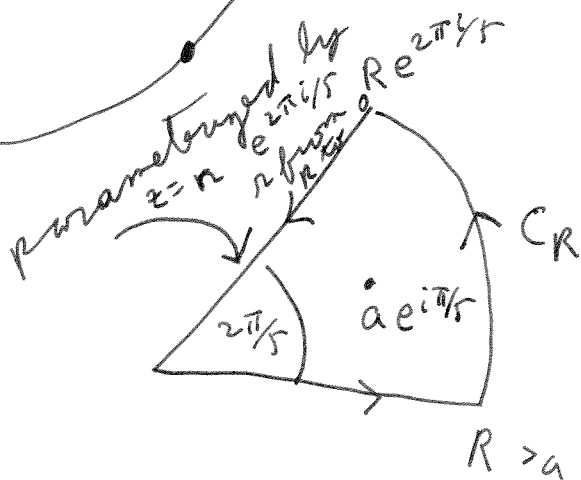 parametrized by
z = r e^{2πi/5}
r from
R to
Re^{2πi/5}
C_R
ae^{iπ/5}
2π/5
R > a